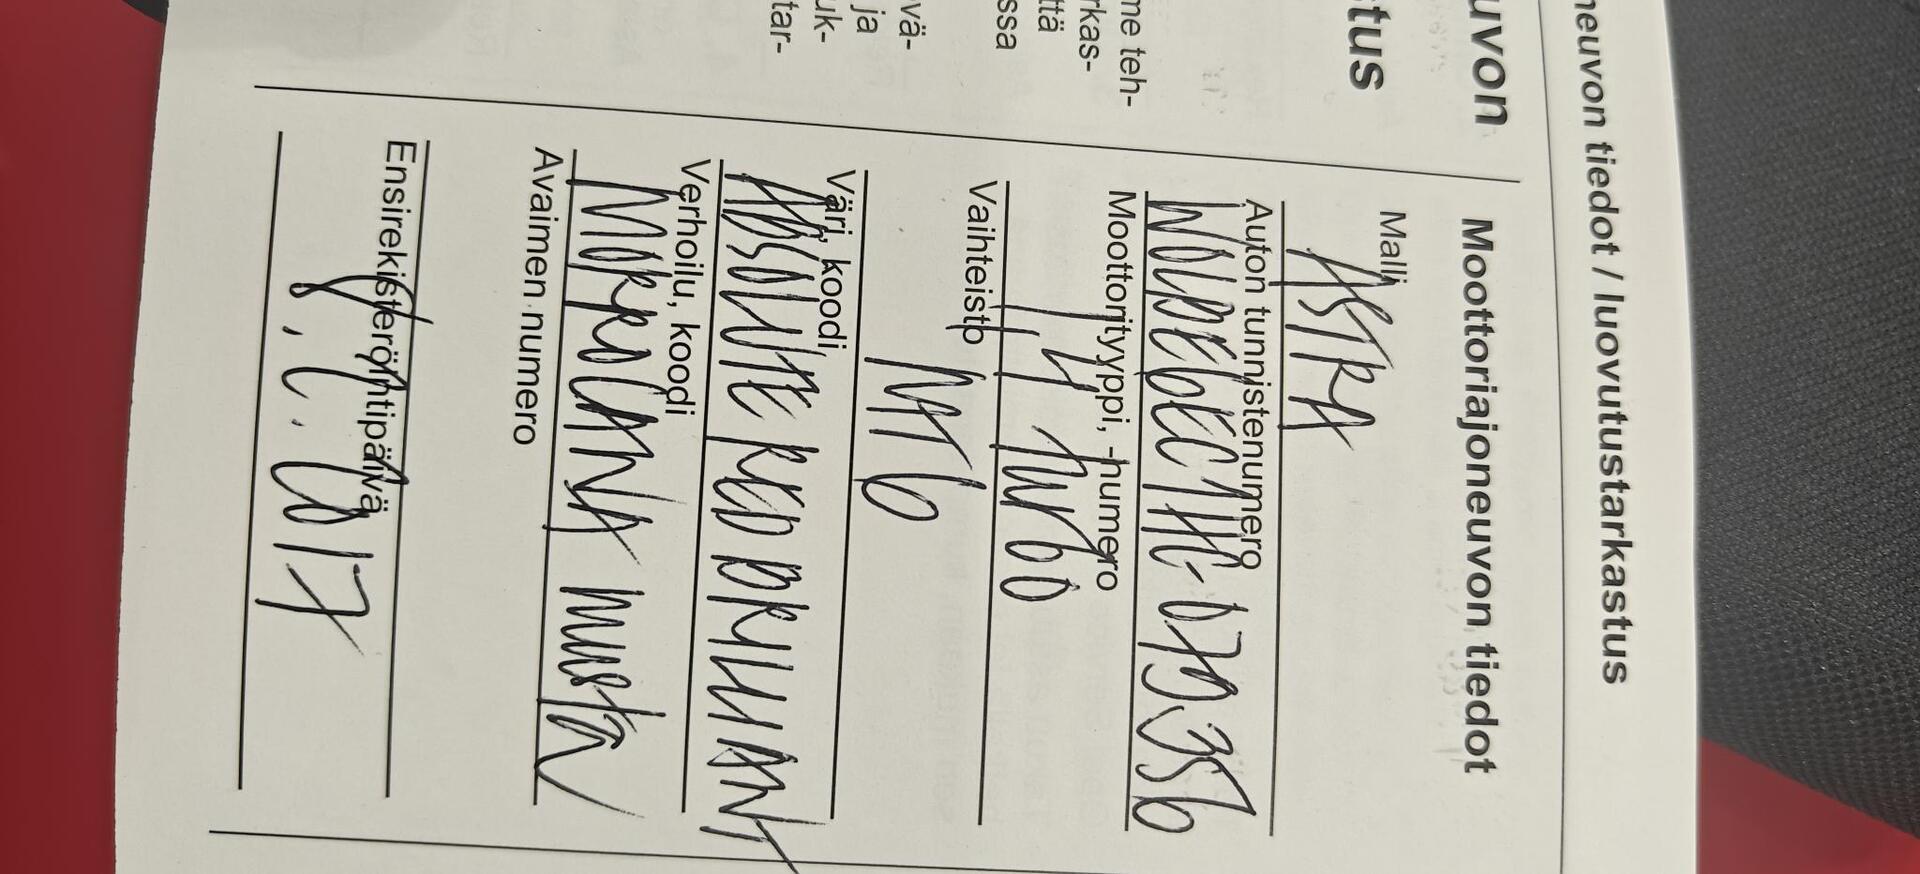 neuvon tiedot / luovutustarkastus
uvon
tus
me teh-
rkas-
ttä
ssa
vä-
ja
uk-
tar-
Moottoriajoneuvon tiedot
Malli
ASTRA
Auton tunnistenumero
Moottorityyppi, -numero
1,4 turbo
Vaihteisto
MT6
Väri, koodi
ABSOLUTE RED BRILLIANT
Verhoilu, koodi
musta
Avaimen numero
Ensirekisteröintipäivä